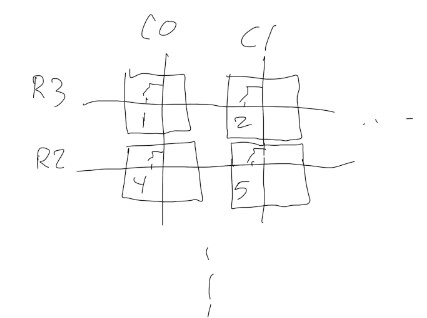 C0 C1
R3
1 2
R2
4 5